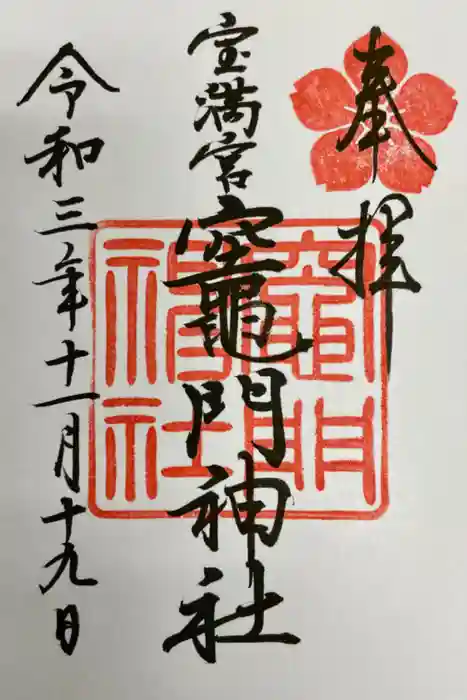 奉拝
宝満宮
竈門神社
令和三年十一月十九日
竈門神社